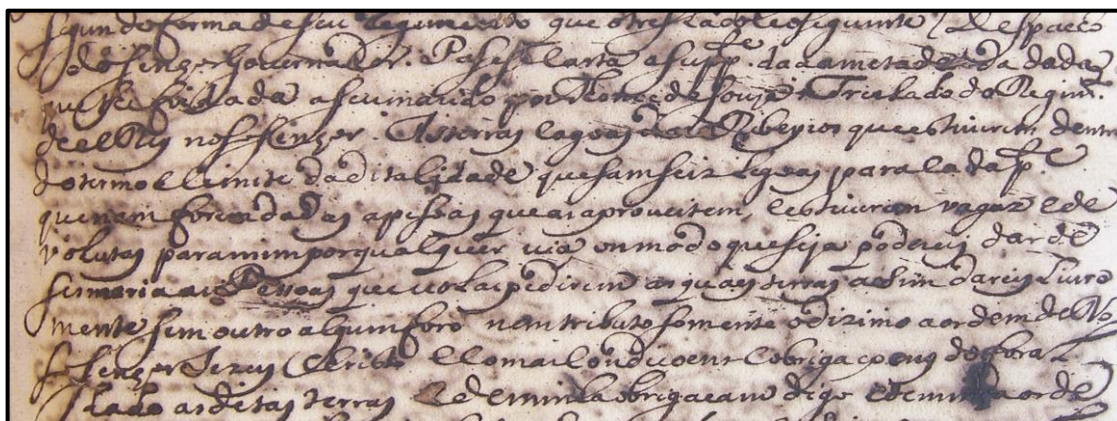 segundo forma de seu Regimento que o treslado he o seguinte Despacho
do senhor Governador. Passe Carta a supp.te da ametade da dada
que foi dada a seu marido por thome de souza Treslado do Regim.to
de el Rey nosso senhor. As terras e agoas das Ribeyras que estiverem dentro
do termo e limite da dita cidade que sam seiz legoas para cada p.te
que nam forem dadas a pessoas que as aproveitem, e estiverem vagaz e de
volutas para mim por qualquer via ou modo que seja podereis dar de
sesmaria as Pessoas que vollas pedirem as quaes terras assim dareis livre
mente sem outro algum foro nem tributo somente o dizimo a ordem de No
sso senhor Jezus Christo e com as condicoens e obrigacoens do foral
dado as ditas terras e de minha ordenação digo de minha orde